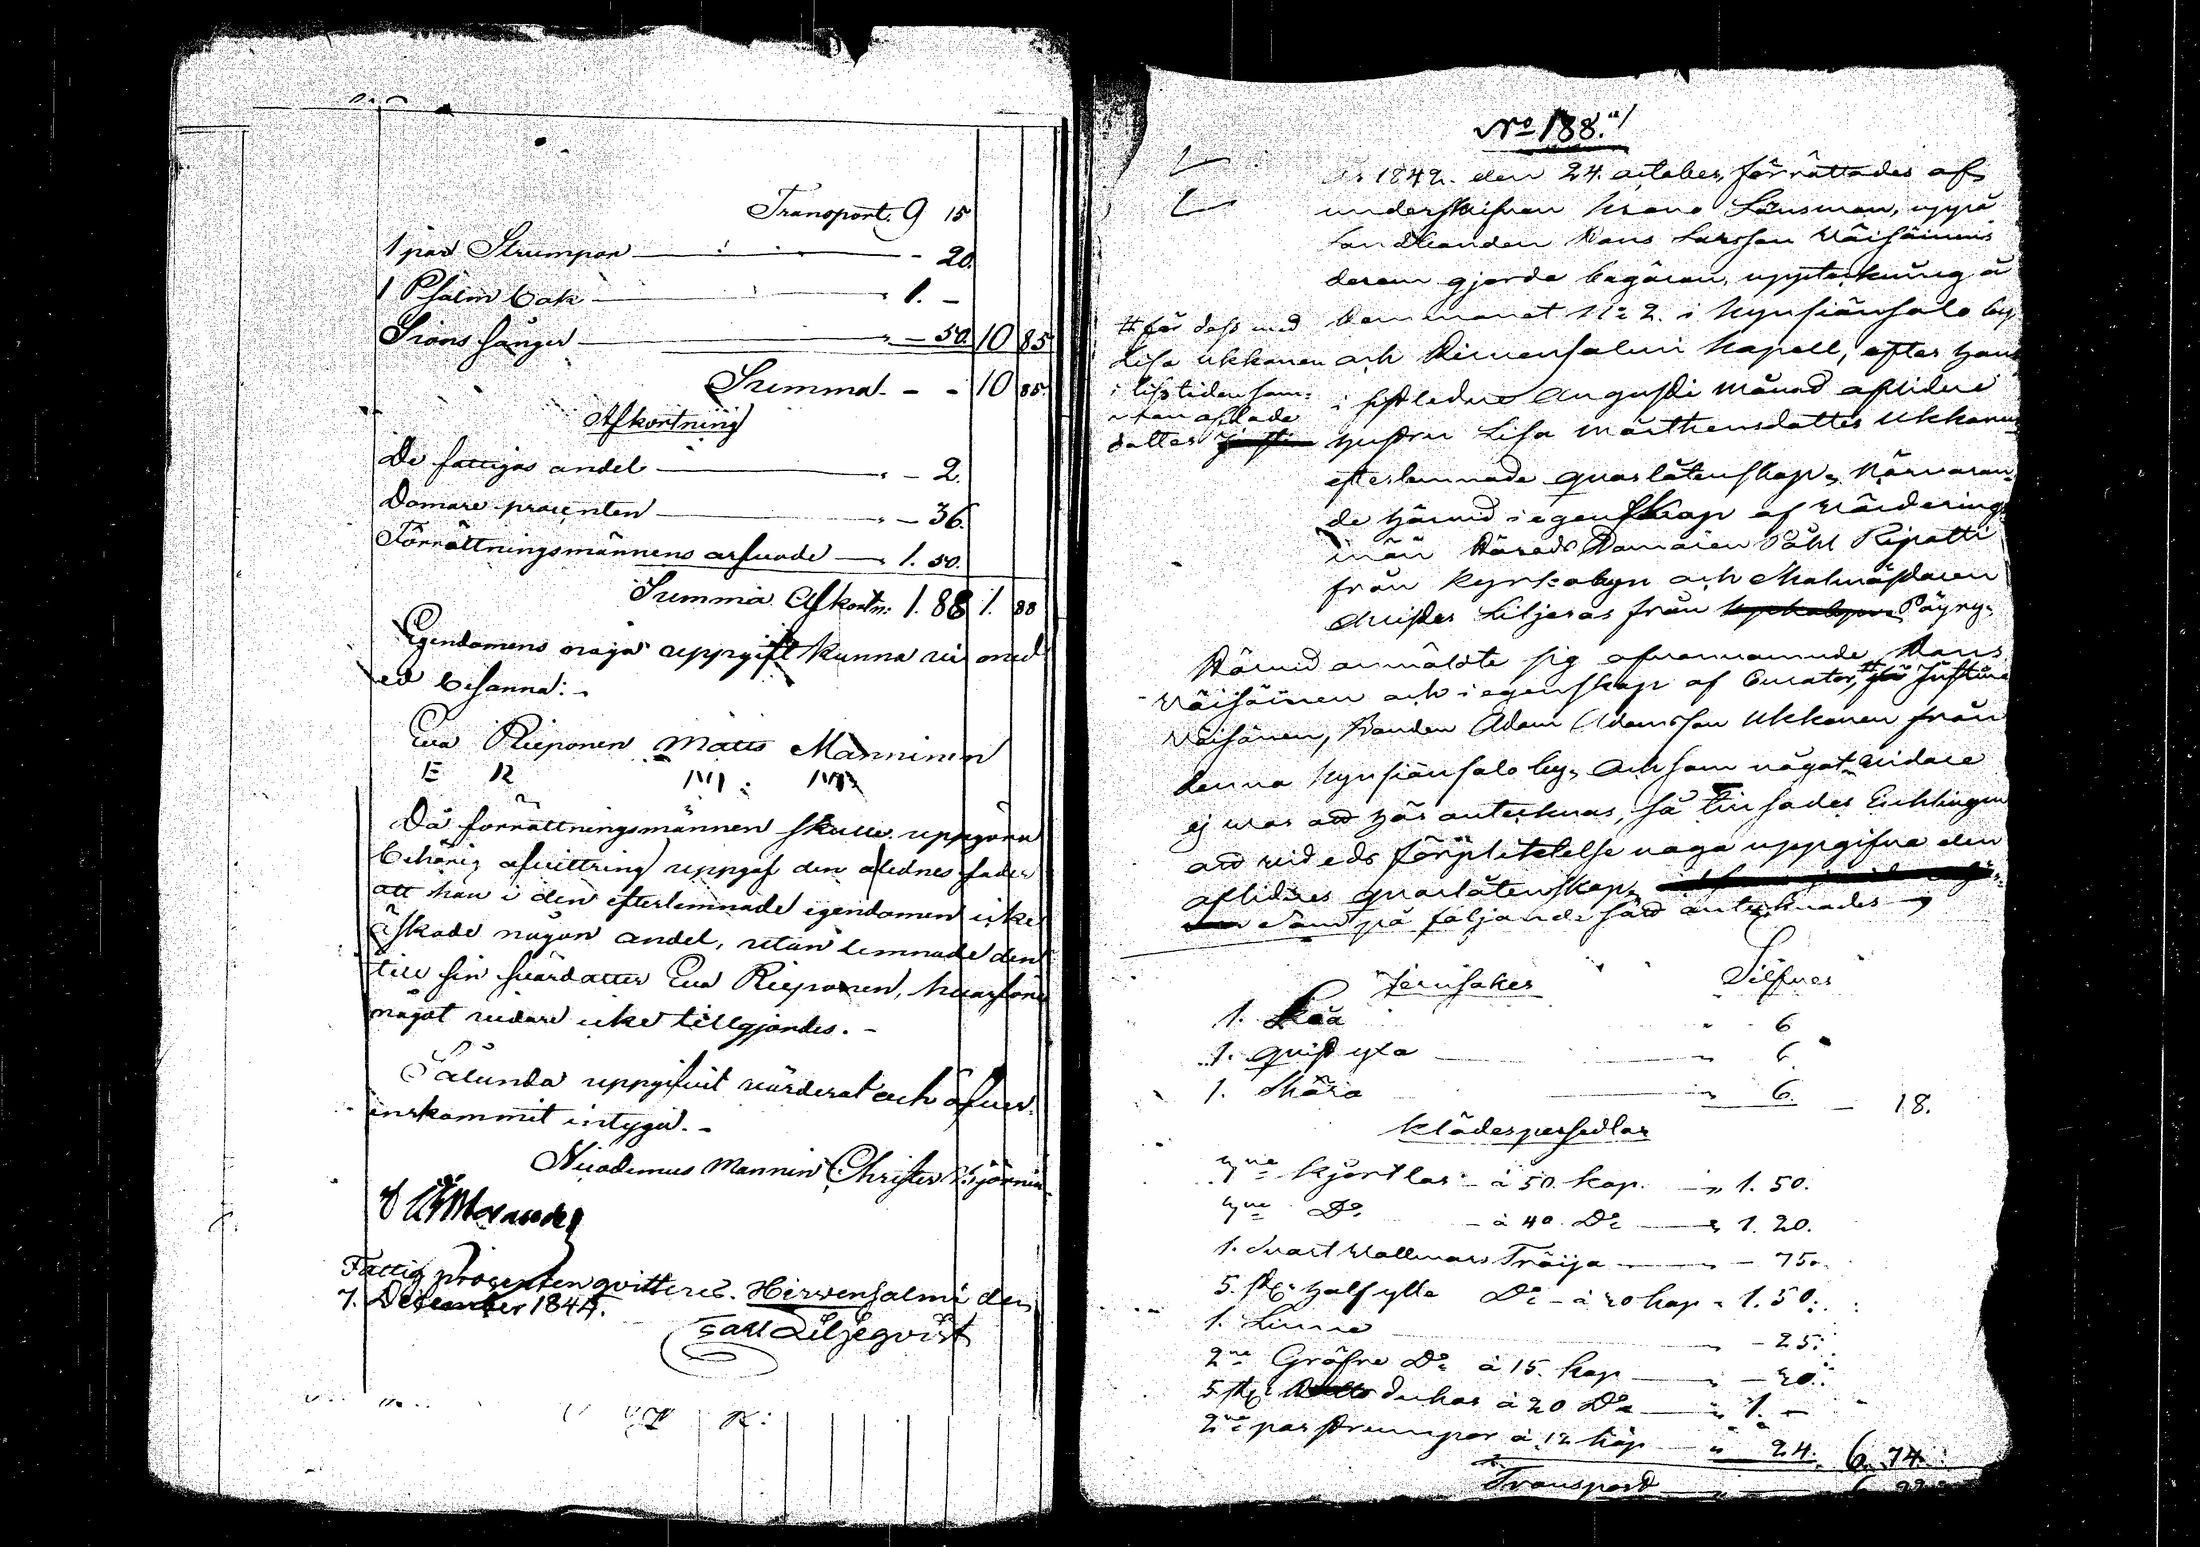 Transport. 9 15
1 par Strumpor - 20.
1 Psalm bok 1. -
Sions sånger - 50. 10 85
Summa. - - 10 85.
Afkortning
De fattigas andel - 2.
Domare procenten - 36.
Förrättningsmännens arfvode 1. 50.
Summa Afkortn: 1. 88 1. 88
Egendomens noga uppgift kunna vi med
ed besanna:.
Eva Rieponen Matts Manninen
E R M: M
Då förrättningsmännen skulle uppgöra
behörig afvittring uppgaf den aflednes fader
att han i den efterlemnade egendomen icke
äskade någon andel, utan lemnade den
till sin svärdotter Eva Rieponen, hvarföre
något vidare icke tillgjordes. -
Sålunda uppgifvit värderat och öfver-
enskommit intyga. -
Nicodemus Mannin Christer Björnin
Fattig procenten qvitteres. Hirvensalmi den
7. December 1844.
Carl Liljeqvist
No 188.
1842. den 24. october, förrättades af
underskrifven Krono Länsman, uppå
Bonden Hans Larsson Väisäinens
derom gjorde begäran, uppteckning å
Hemmanet No 2. i Kynsiänsalo by
och Hirvensalmi Kapell, efter hans
i sistledne Augusti Månad aflidne
hustru Lisa Mårthensdotter Ukkonens
efterlemnade qvarlåtenskap, Närvaran-
de härvid i egenskap af Värderings
män Härads Domaren Påhl Ripatti
från Kyrkobyn och Malmästaren
Christer Liljeros från Pöyry-
# för dess med
Lisa Ukkonen
i lifstiden sam-
man aflade
dotter
Härvid anmälte sig ofvannämnde Hans
Väisäinen och i egenskap af Curator, # för Justina
Väisänen, Bonden Adam Adamsson Ukkonen från
denna Kynsiänsalo by, Och som något vidare
ej var att här anteknas, så tillsades Enklingen
att vid eds förpliktelse noga uppgifva den
aflidnes qvarlåtenskap,
som på följande sätt anteknades
Jernsaker Silfver
1. Lia 6
1. qvist yxa 6
1. Skära 6. 18.
Klädespersedlar
3ne Kjortlar à 50 kop. 1. 50.
3ne Do - à 40. Do 1. 20.
1. Svart Vallmars Tröija - 75.
5. st: half ylle Do - à 30 kop 1. 50.
1. Linne - 25.
2ne Gröfre Do à 15. kop - 30.
5 st: dukar à 20 Do 1. -
2ne par strumpor à 12 kop 24. 6. 74.
Transport